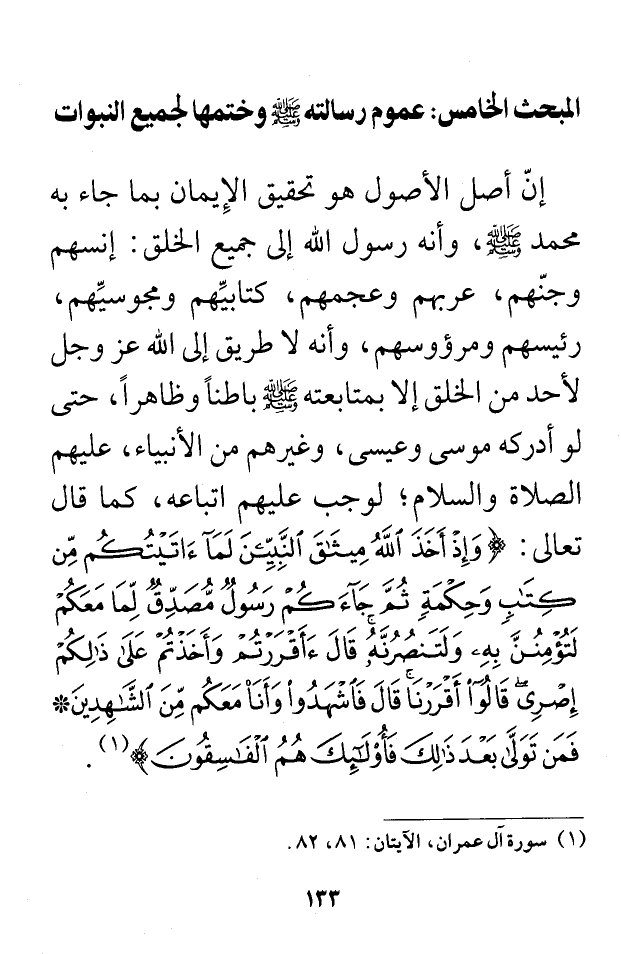 المبحث الخامس: عموم رسالته ﷺ وختمها لجميع النبوات
إنّ أصل الأصول هو تحقيق الإيمان بما جاء به
محمد ﷺ، وأنه رسول الله إلى جميع الخلق: إنسهم
وجنّهم، عربهم وعجمهم، كتابيِّهم ومجوسيِّهم،
رئيسهم ومرؤوسهم، وأنه لا طريق إلى الله عز وجل
لأحد من الخلق إلا بمتابعته ﷺ باطناً وظاهراً، حتى
لو أدركه موسى وعيسى، وغيرهم من الأنبياء، عليهم
الصلاة والسلام؛ لوجب عليهم اتباعه، كما قال
تعالى: ﴿ وَإِذْ أَخَذَ ٱللَّهُ مِيثَٰقَ ٱلنَّبِيِّۦنَ لَمَآ ءَاتَيْتُكُم مِّن
كِتَٰبٍ وَحِكْمَةٍ ثُمَّ جَآءَكُمْ رَسُولٌ مُّصَدِّقٌ لِّمَا مَعَكُمْ
لَتُؤْمِنُنَّ بِهِۦ وَلَتَنصُرُنَّهُۥۚ قَالَ ءَأَقْرَرْتُمْ وَأَخَذْتُمْ عَلَىٰ ذَٰلِكُمْ
إِصْرِىۖ قَالُوٓا۟ أَقْرَرْنَاۚ قَالَ فَٱشْهَدُوا۟ وَأَنَا۠ مَعَكُم مِّنَ ٱلشَّٰهِدِينَ *
فَمَن تَوَلَّىٰ بَعْدَ ذَٰلِكَ فَأُو۟لَٰٓئِكَ هُمُ ٱلْفَٰسِقُونَ ﴾(١).
(١) سورة آل عمران، الآيتان: ٨١، ٨٢.
١٣٣